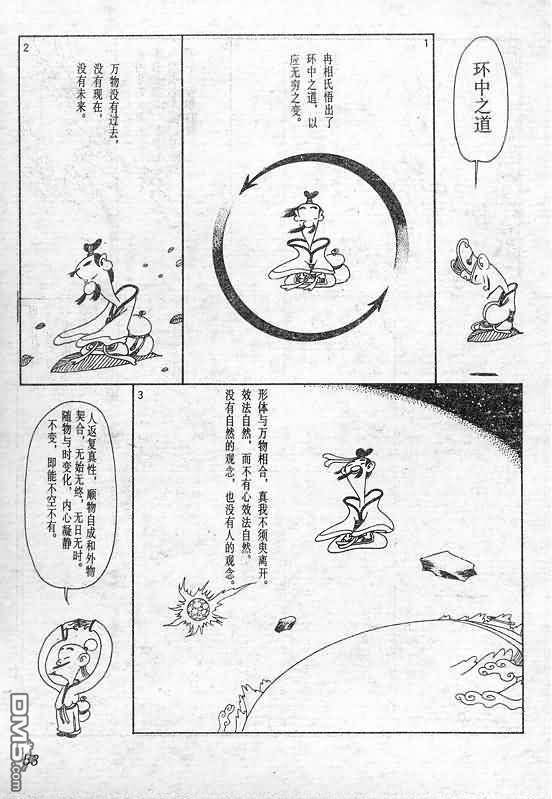 环中之道
1
冉相氏悟出了
环中之道，以
应无穷之变。
2
万物没有过去，
没有现在，
没有未来。
3
形体与万物相合，真我不须臾离开。
效法自然，而不有心效法自然。
没有自然的观念，也没有人的观念。
人返复真性，顺物自成和外物
契合，无始无终，无日无时。
随物与时变化，内心凝静
不变，即能不空不有。
DM5
.com
53